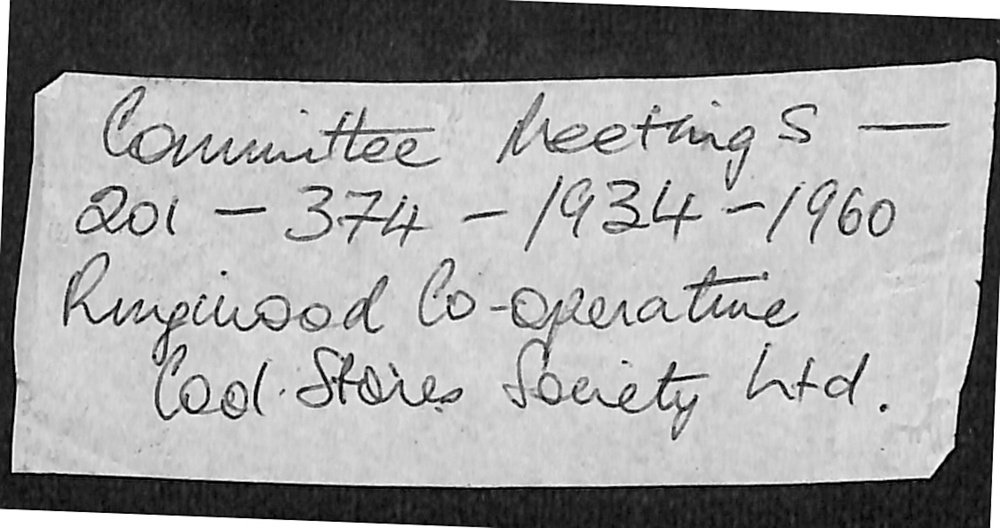 Committee Meetings —
201 — 374 — 1934 — 1960
Ringwood Co-operative
Cool Stores Society Ltd.